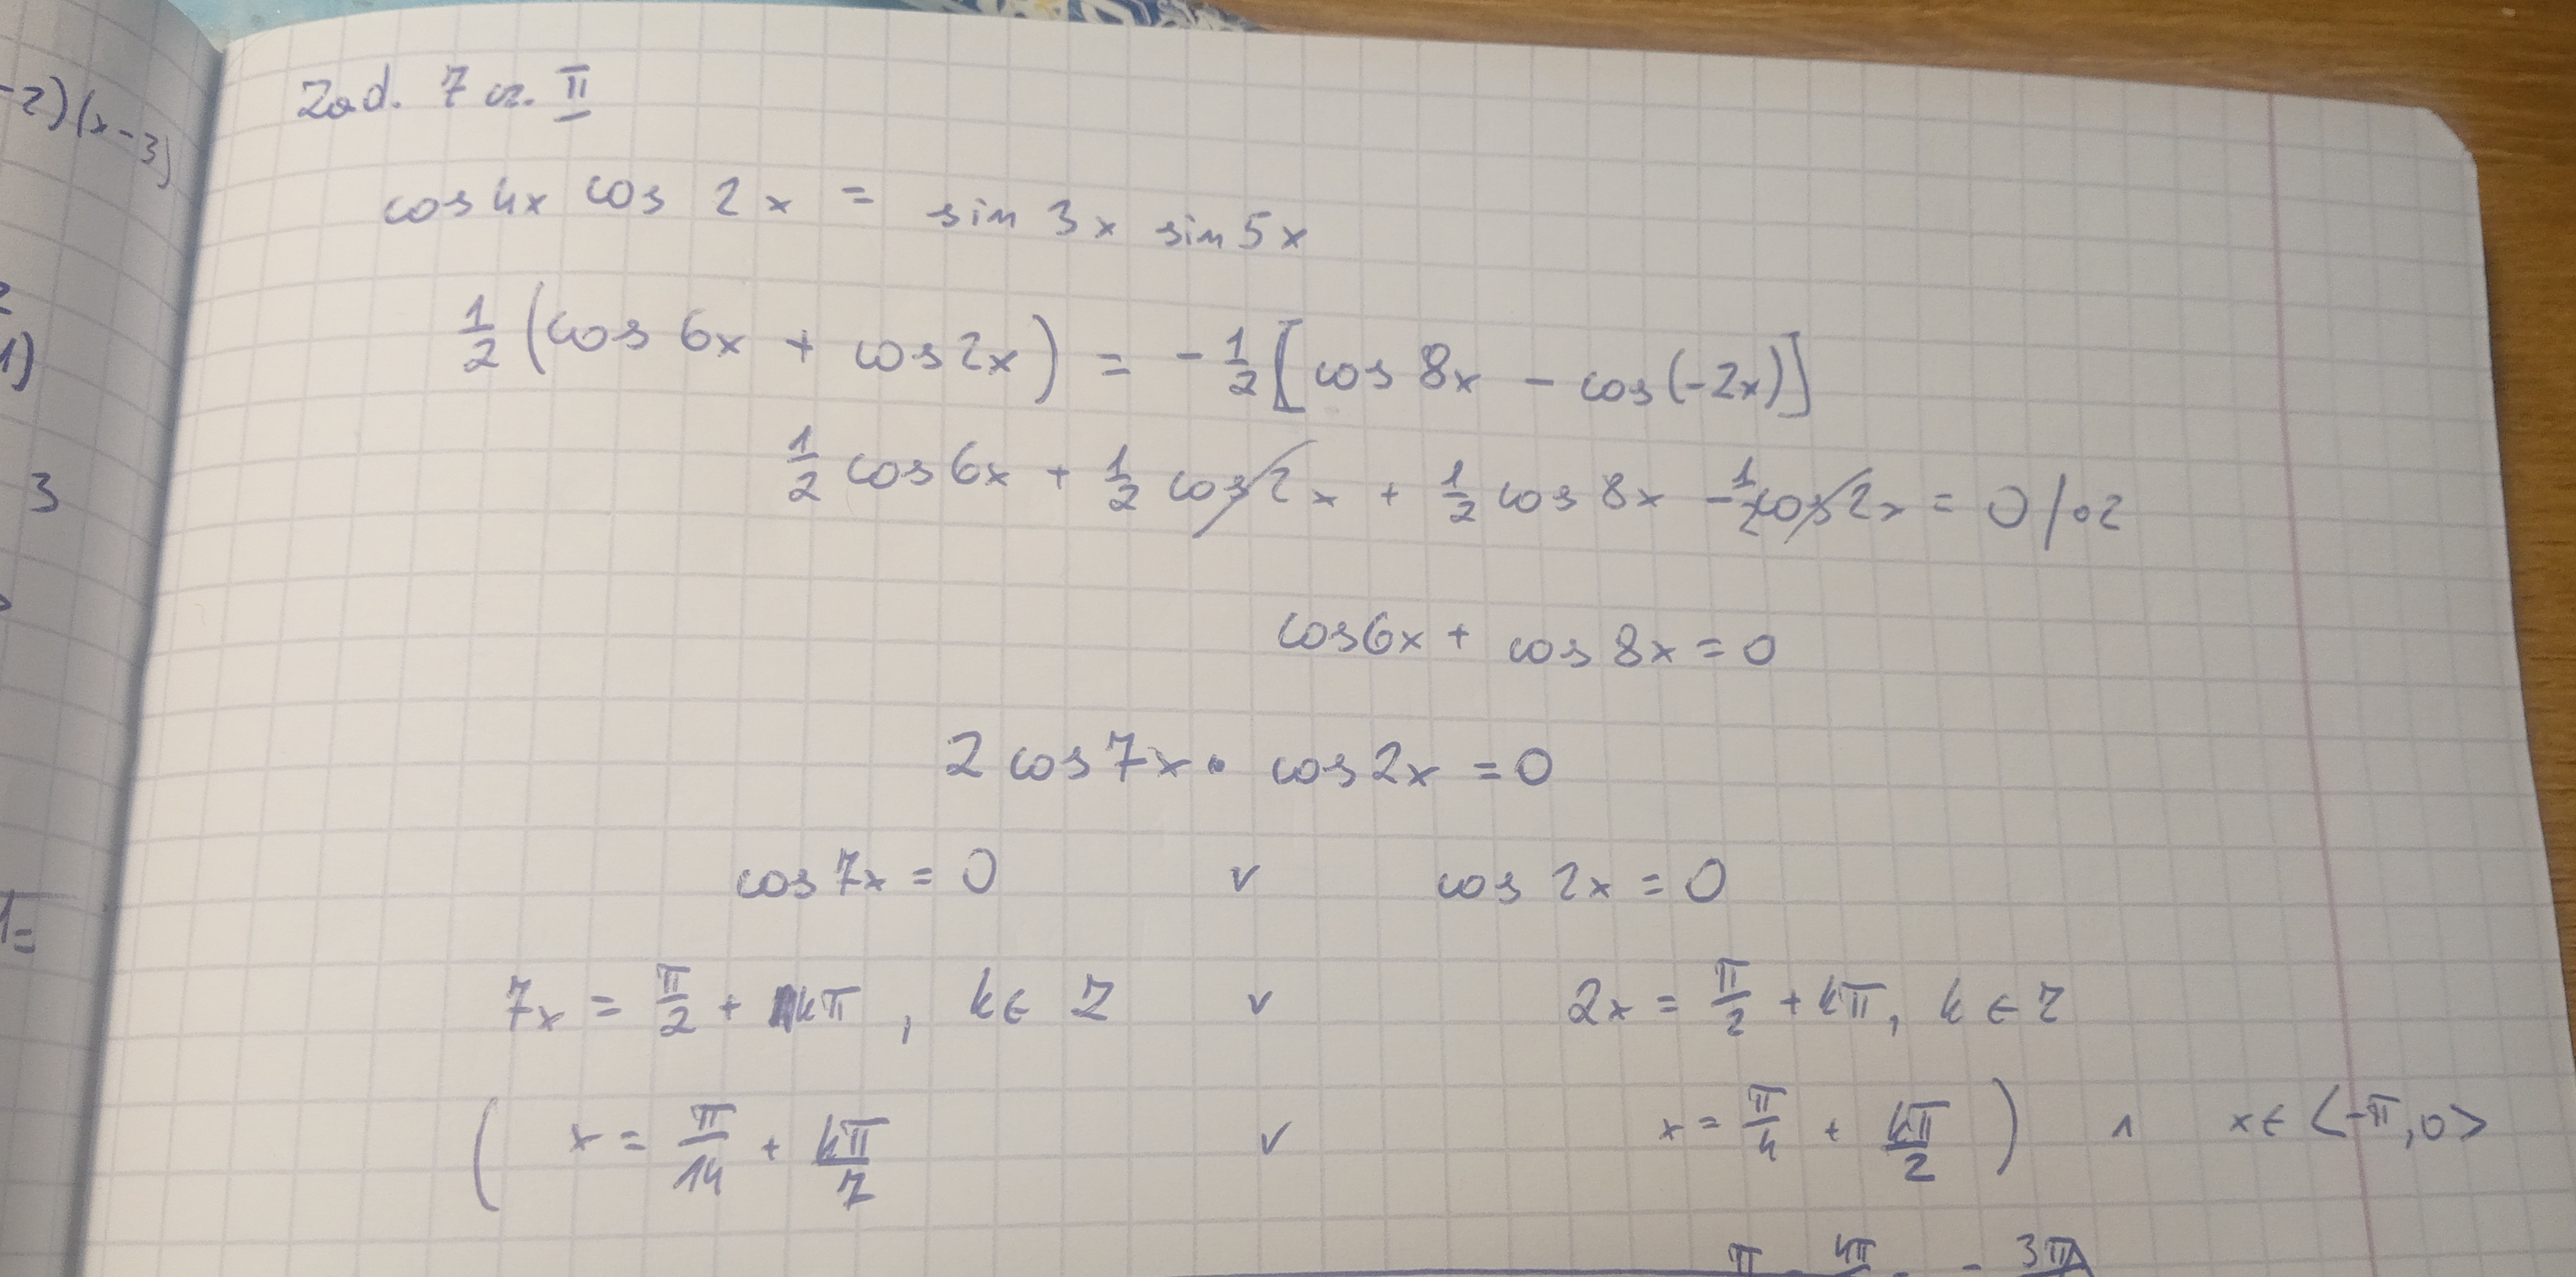 -2)(x-3)
1)
3
1=
Zad. 7 cz. II
cos 4x cos 2x = sin 3x sin 5x
1/2 (cos 6x + cos 2x) = -1/2 [cos 8x - cos(-2x)]
1/2 cos 6x + 1/2 cos 2x + 1/2 cos 8x - 1/2 cos 2x = 0 /·2
cos 6x + cos 8x = 0
2 cos 7x · cos 2x = 0
cos 7x = 0 v cos 2x = 0
7x = π/2 + kπ, k ∈ Z v 2x = π/2 + kπ, k ∈ Z
( x = π/14 + kπ/7 v x = π/4 + kπ/2 ) ∧ x ∈ <-π, 0>
π 4π - 3π